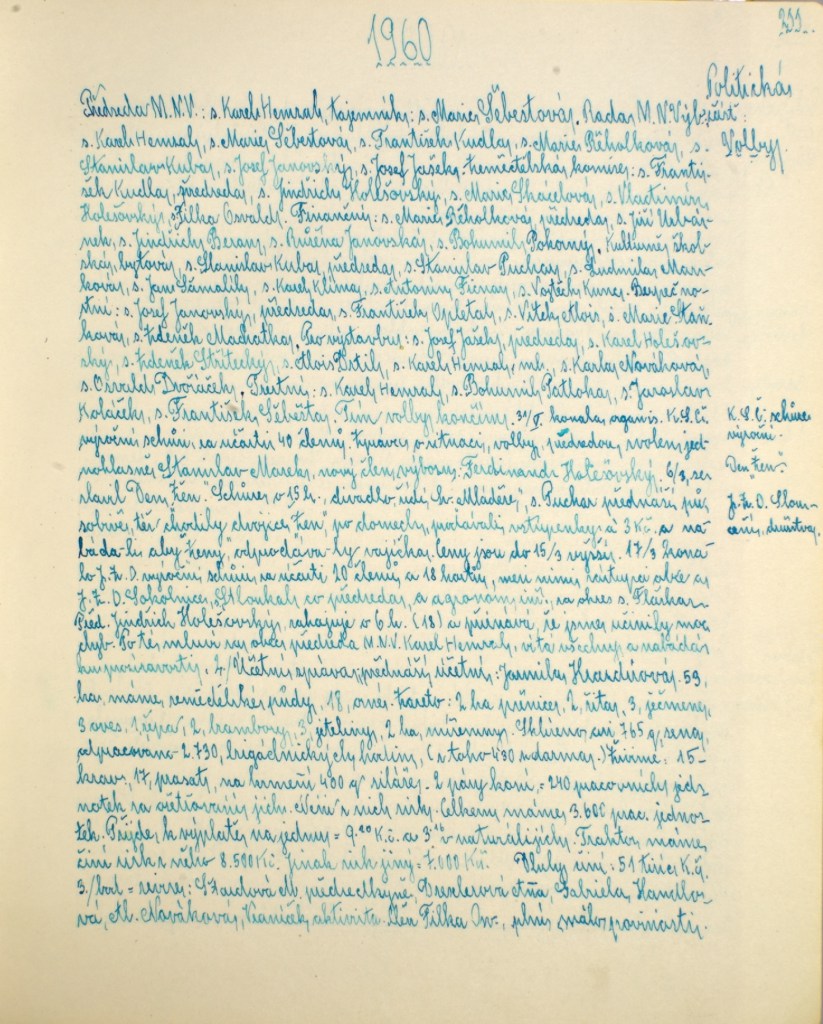 1960
211.
Politická
část:
Volby.
Předseda M.N.V.: s. Karel Hemsal, tajemník: s. Marie Šebestová. Rada M.N.Výb.:
s. Karel Hemsal, s. Marie Šebestová, s. František Kudla, s. Marie Řeholková, s.
Stanislav Kuba, s. Josef Janovský, s. Josef Jašek. Zemědělská komise: s. Franti-
šek Kudla předseda, s. Jindřich Holešovský, s. Marie Skácelová, s. Vlastimír
Holešovský, s. Filka Osvald. Finanční: s. Marie Řeholková předseda, s. Jiří Urbá-
nek, s. Jindřich Beran, s. Růžena Janovská, s. Bohumil Pokorný. Kulturně škol-
ská, bytová, s. Stanislav Kuba, předseda, s. Stanislav Puchar, s. Ludmila Mar-
ková, s. Jan Šamalík, s. Karel Klíma, s. Antonín Ficnar, s. Vojtěch Kunc. Bezpečno-
stní: s. Josef Janovský, předseda, s. František Opletal, s. Vítek Alois, s. Marie Staň-
ková, s. Zdeněk Machatka. Pro výstavbu: s. Josef Jašek, předseda, s. Karel Holešov-
ský, s. Zdeněk Střítecký, s. Alois Dostil, s. Karel Hemsal, ml., s. Karla Nováková,
s. Osvald Dvořáček. Trestní: s. Karel Hemsal, s. Bohumil Patloka, s. Jaroslav
Koláček, s. František Šebesta. Tím volby končíny. 31/I. konala organis. K.S.Č.
výroční schůzi za účasti 40 členů. Zprávy o situaci, volby, předsedou zvolen jed-
nohlasně Stanislav Marek, nový člen výboru: Ferdinand Holešovský. 6/3, se
slavil Den „Žen". Schůze v 15 h., divadlo řídí Sv. Mládeže, s. Puchar přednáší pů-
sobivě, též chodily dvojice „Žen" po domech, prodávali vstupenky á 3 Kč. a na-
báda-li aby „Ženy" odprodáva-ly vajíčka. Ceny jsou do 15/3 vyšší. 17/3 kona-
lo J.Z.D. výroční schůzi za účasti 20 členů a 18 hostů, mezi nimi
J.Z.D. Sokolnice, Stloukal co předseda, a agronom za okres s.
Před. Jindřich Holešovský, zahajuje v 6 h. (18) a přiznává, že jsme učinily moc
chyb. Po té mluví za obec předseda M.N.V. Karel Hemsal, vítá všechny a nabádá
ku pozoravosti. 2/ Účetní správa, přednáší účetní: Jarmila 59,
ha, máme, zemědělské půdy, 18, orné. Zaseto: 2 ha pšenice, 2, žita, 3, ječmene,
3 oves, 1, řepa, 2, brambory, 3, jeteliny, 2 ha, Sklizeno ani 765 q, sena,
odpracováno 2.730, brigádnických hodin, (z toho 430 zdarma.) Živíme: 15-
krav, 17, prasat, na krmení 400 q siláže. 2 páry koní = 240 pracovních jed-
notek za ošetřování jich. Není z nich zisk. Celkem máme 3.600 prac. jedno-
tek. Přijde, k výplatě, na jednu = 9.20 Kč. a 3.16 v naturálijích. Traktor máme,
činí zisk z něho 8.500 Kč. Jinak zisk jiný = 7.000 Kčs. Dluhy činí: 51 tisíc Kčs.
3./ bod = revize: M. předsedkyně, Gabriela Handlo-
vá, Al. Nováková, aktivita. Člen Filka Osv., plní málo povinosti.
K.S.Č. schůze
výroční.
Den „Žen".
J.Z.D. Slou-
čení, družstva.